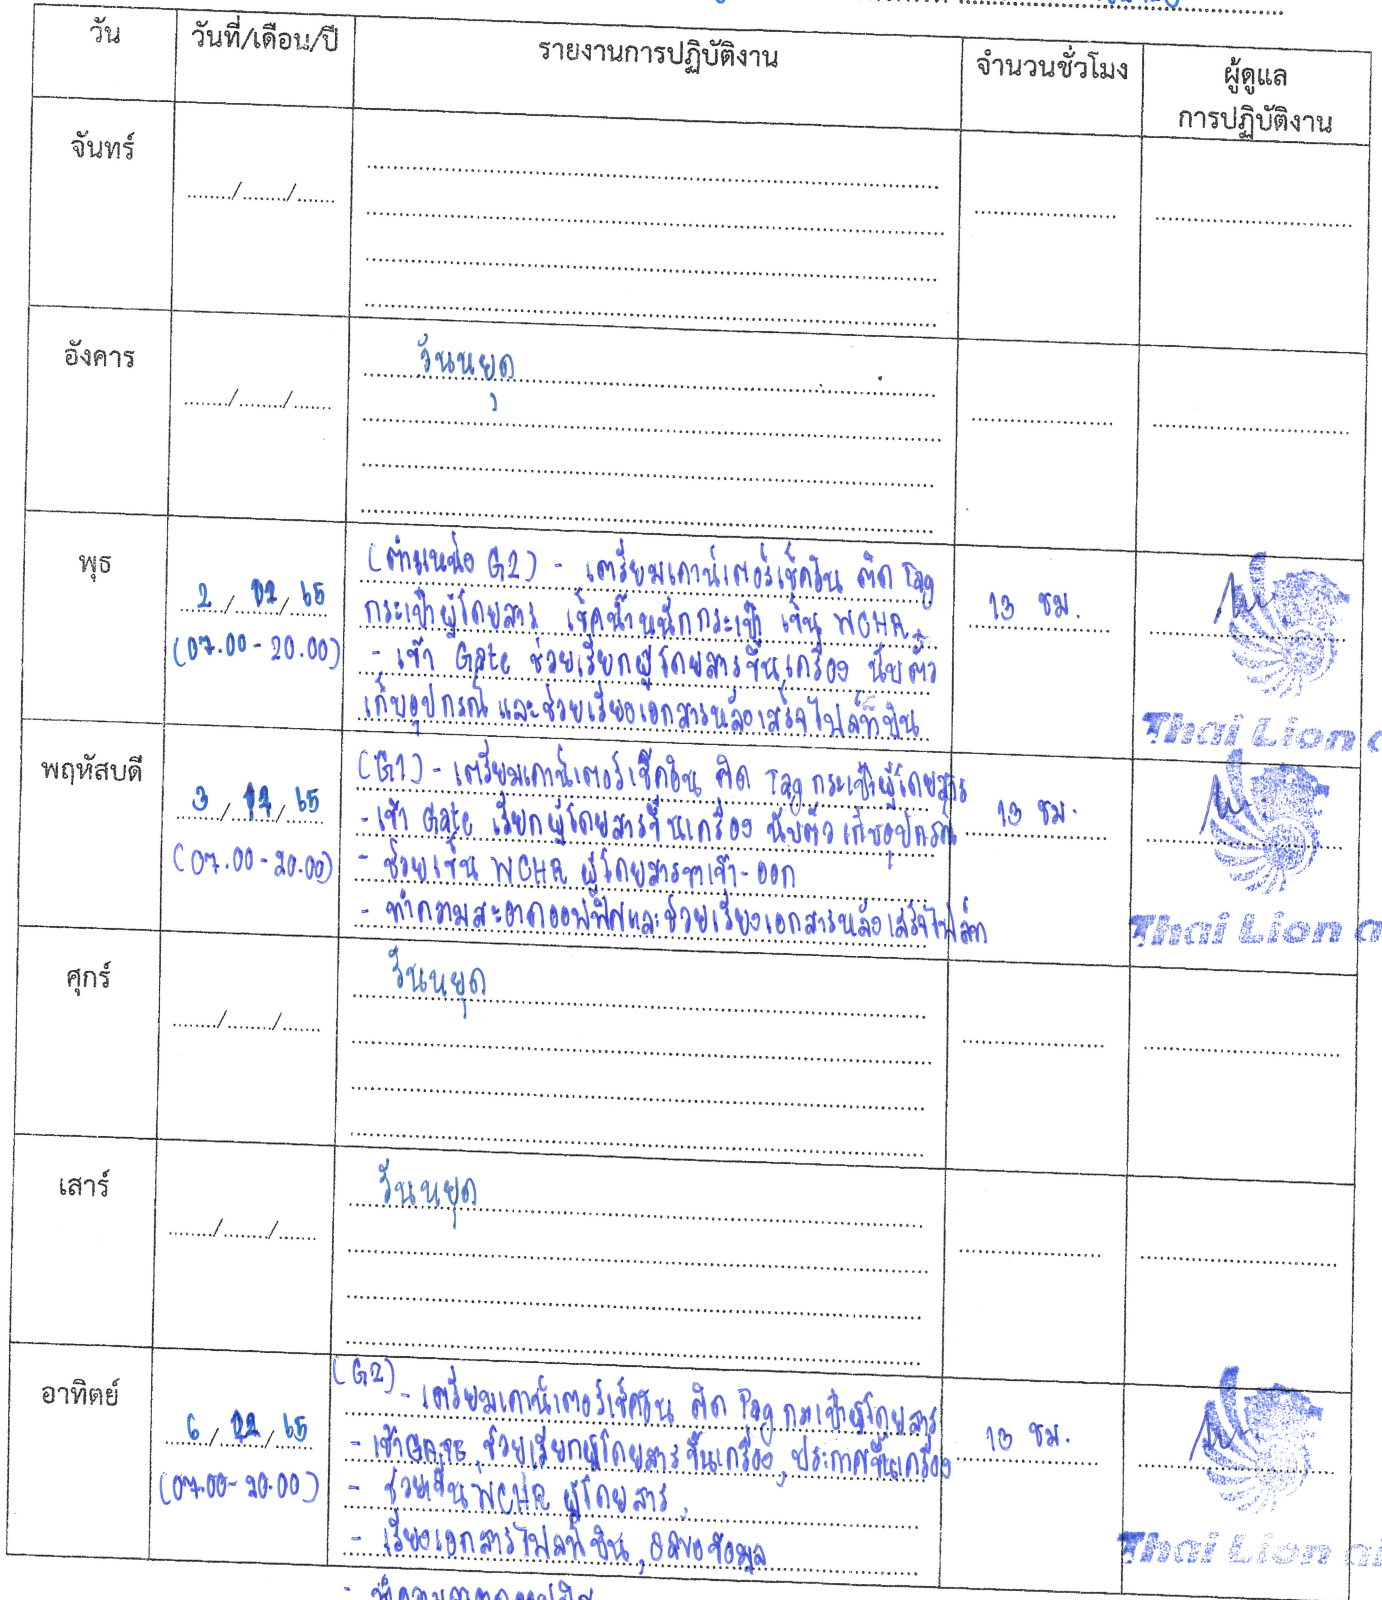 วัน
วันที่/เดือน/ปี
รายงานการปฏิบัติงาน
จำนวนชั่วโมง
ผู้ดูแล
การปฏิบัติงาน
จันทร์
......./......./.......
อังคาร
......./......./.......
วันหยุด
พุธ
2 / / 65
(07.00 - 20.00)
(ตำแหน่ง G2) - เตรียมเคาน์เตอร์เช็คอิน ติด Tag
กระเป๋าผู้โดยสาร เช็คน้ำหนักกระเป๋า เข็น WCHR
- เข้า Gate ช่วยเรียกผู้โดยสารขึ้นเครื่อง นับตั๋ว
เก็บอุปกรณ์ และช่วยเรียงเอกสารหลังเสร็จไฟล์ทบิน
13 ชม.
Thai Lion
พฤหัสบดี
3 / / 65
(07.00 - 20.00)
(G1) - เตรียมเคาน์เตอร์เช็คอิน ติด Tag กระเป๋าผู้โดยสาร
- เข้า Gate เรียกผู้โดยสารขึ้นเครื่อง นับตั๋ว เก็บอุปกรณ์
- ช่วยเข็น WCHR ผู้โดยสารขาเข้า - ออก
- ทำความสะอาดออฟฟิศและช่วยเรียงเอกสารหลังเสร็จไฟล์ท
13 ชม.
Thai Lion
ศุกร์
......./......./.......
วันหยุด
เสาร์
......./......./.......
วันหยุด
อาทิตย์
6 / / 65
(07.00 - 20.00)
(G2)
- เตรียมเคาน์เตอร์เช็คอิน ติด Tag กระเป๋าผู้โดยสาร
- เข้า GATE ช่วยเรียกผู้โดยสารขึ้นเครื่อง, ประกาศขึ้นเครื่อง
- ช่วยเข็น WCHR ผู้โดยสาร
- เรียงเอกสารไฟล์ทบิน, ข้อมูล
13 ชม.
Thai Lion ai